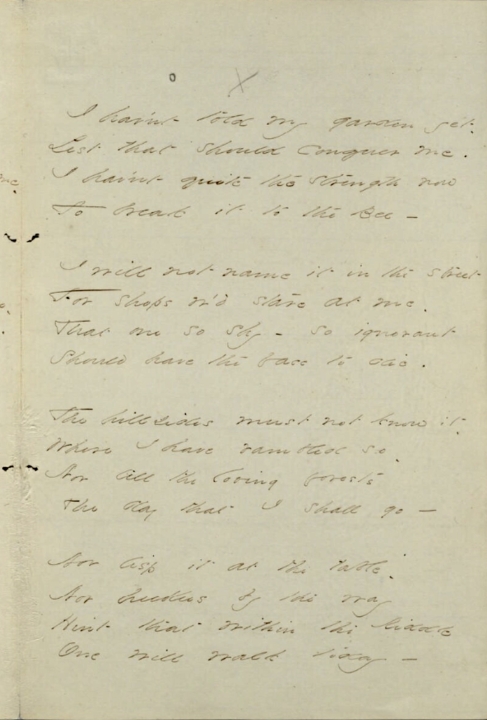 I hav'nt told my garden yet.
Lest that should conquer me.
I hav'nt quite the strength now
To break it to the Bee –
I will not name it in the street
For shops w'd stare at me.
That one so shy – so ignorant
Should have the face to die.
The hillsides must not know it.
Where I have rambled so.
Nor tell the loving forests
The day that I shall go –
Nor lisp it at the table.
Nor heedless by the way
Hint that within the Riddle
One will walk today –